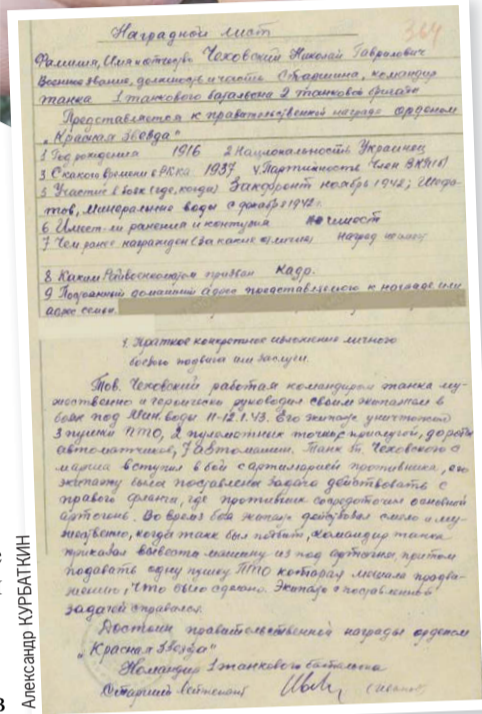 Наградной лист
364
Фамилия, Имя и отчество Чековский Николай Гаврилович
Военное звание, должность и часть Старшина, командир
танка 1 танкового батальона 2 танковой бригады
Представляется к правительственной награде орденом
„Красная Звезда"
1 Год рождения 1916 2 Национальность Украинец
3 С какого времени в РККА 1937 4 Партийность Член ВКП(б)
5 Участие в боях (где, когда) Закфронт ноябрь 1942;
Минеральные воды с декабря 1942 г.
6 Имеет ли ранения и контузии не имеет
7 Чем ранее награжден (за какие отличия) Наград не имеет
8 Каким Райвоенкоматом призван Кадр.
9 Постоянный домашний адрес представляемого к награде или
адрес семьи
1. Краткое конкретное изложение личного
боевого подвига или заслуги.
Тов. Чековский работая командиром танка му-
жественно и героически руководил своим экипажем в
боях под Мин. воды 11-12.1.43. Его экипаж уничтожил
3 пушки ПТО, 2 пулеметных точки с прислугой, до роты
автоматчиков, 7 автомашин. Танк т. Чековского с
марша вступил в бой с артиллерией противника, его
экипажу была поставлена задача действовать с
правого фланга, где противник сосредоточил основной
артогонь. Во время боя экипаж действовал смело и му-
жественно, когда танк был подбит, командир танка
приказал вывести машину из под артогня, притом
подавить одну пушку ПТО которая мешала продви-
жению, что было сделано. Экипаж с поставленной
задачей справился.
Достоин правительственной награды орденом
„Красная Звезда"
Командир 1 танкового батальона
Старший Лейтенант
Александр КУРБАТКИН